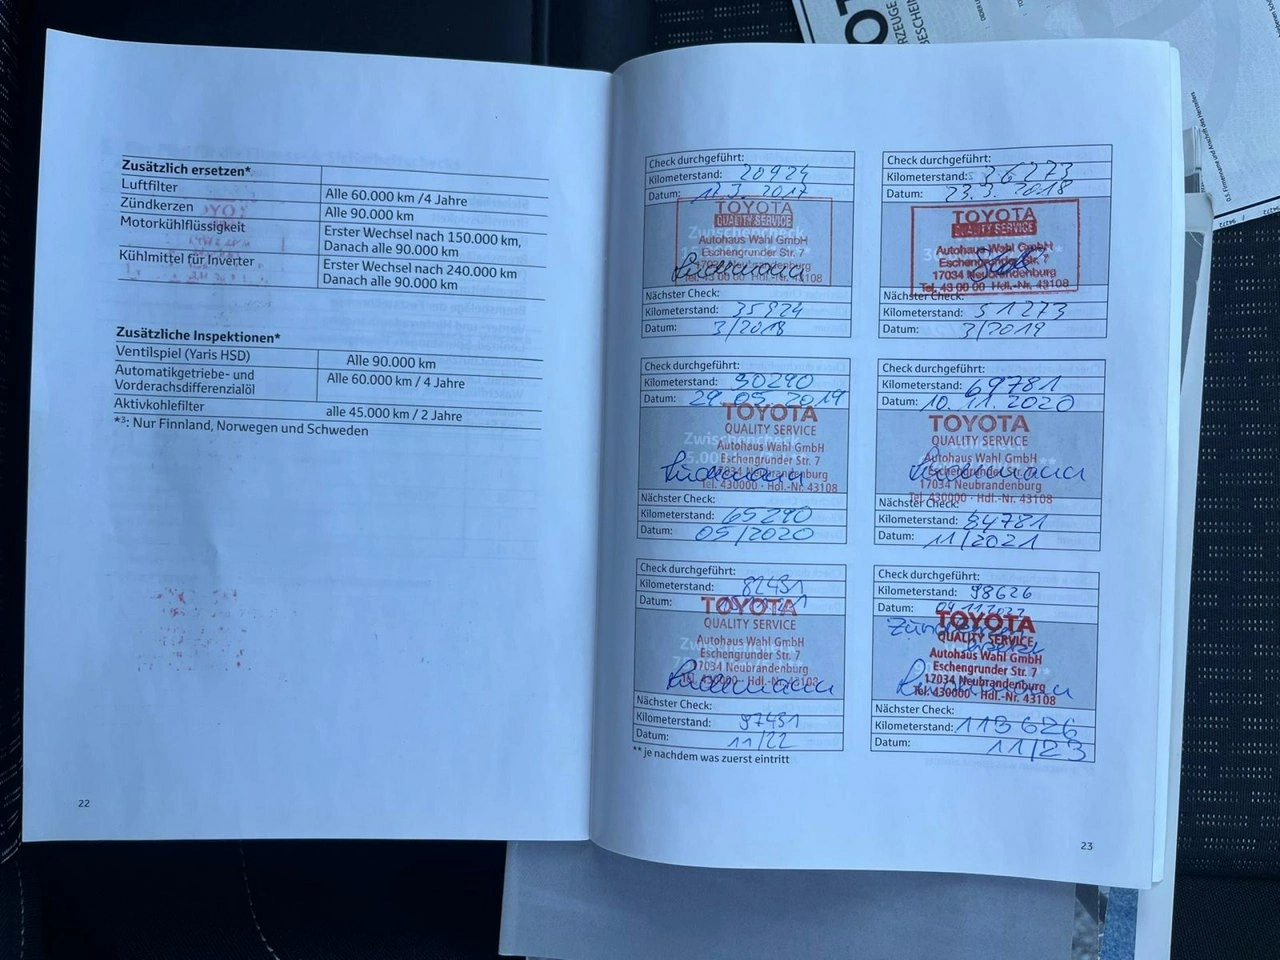 Zusätzlich ersetzen*
Luftfilter Alle 60.000 km /4 Jahre
Zündkerzen Alle 90.000 km
Motorkühlflüssigkeit Erster Wechsel nach 150.000 km,
Danach alle 90.000 km
Kühlmittel für Inverter Erster Wechsel nach 240.000 km
Danach alle 90.000 km
Zusätzliche Inspektionen*
Ventilspiel (Yaris HSD) Alle 90.000 km
Automatikgetriebe- und
Vorderachsdifferenzialöl Alle 60.000 km / 4 Jahre
Aktivkohlefilter alle 45.000 km / 2 Jahre
*³: Nur Finnland, Norwegen und Schweden
22
Check durchgeführt:
Kilometerstand: 20924
Datum: 17.3.2017
TOYOTA
QUALITY SERVICE
Autohaus Wahl GmbH
Eschengrunder Str. 7
17034 Neubrandenburg
Tel. 43 00 00 Hdl.-Nr. 43108
Nächster Check:
Kilometerstand: 35924
Datum: 3/2018
Check durchgeführt:
Kilometerstand: 36273
Datum: 23.3.2018
TOYOTA
QUALITY SERVICE
Autohaus Wahl GmbH
Eschengrunder Str. 7
17034 Neubrandenburg
Tel. 43 00 00 Hdl.-Nr. 43108
Nächster Check:
Kilometerstand: 51273
Datum: 3/2019
Check durchgeführt:
Kilometerstand: 50290
Datum: 29.05.2019
TOYOTA
QUALITY SERVICE
Autohaus Wahl GmbH
Eschengrunder Str. 7
17034 Neubrandenburg
Tel. 430000 - Hdl.-Nr. 43108
Nächster Check:
Kilometerstand: 65290
Datum: 05/2020
Check durchgeführt:
Kilometerstand: 69781
Datum: 10.11.2020
TOYOTA
QUALITY SERVICE
Autohaus Wahl GmbH
Eschengrunder Str. 7
17034 Neubrandenburg
Tel. 430000 - Hdl.-Nr. 43108
Nächster Check:
Kilometerstand: 84781
Datum: 11/2021
Check durchgeführt:
Kilometerstand: 82431
Datum:
TOYOTA
QUALITY SERVICE
Autohaus Wahl GmbH
Eschengrunder Str. 7
17034 Neubrandenburg
Tel. 430000 - Hdl.-Nr. 43108
Nächster Check:
Kilometerstand: 97431
Datum: 11/22
Check durchgeführt:
Kilometerstand: 98626
Datum:
TOYOTA
QUALITY SERVICE
Autohaus Wahl GmbH
Eschengrunder Str. 7
17034 Neubrandenburg
Tel. 430000 - Hdl.-Nr. 43108
Nächster Check:
Kilometerstand: 113626
Datum: 11/23
** je nachdem was zuerst eintritt
23